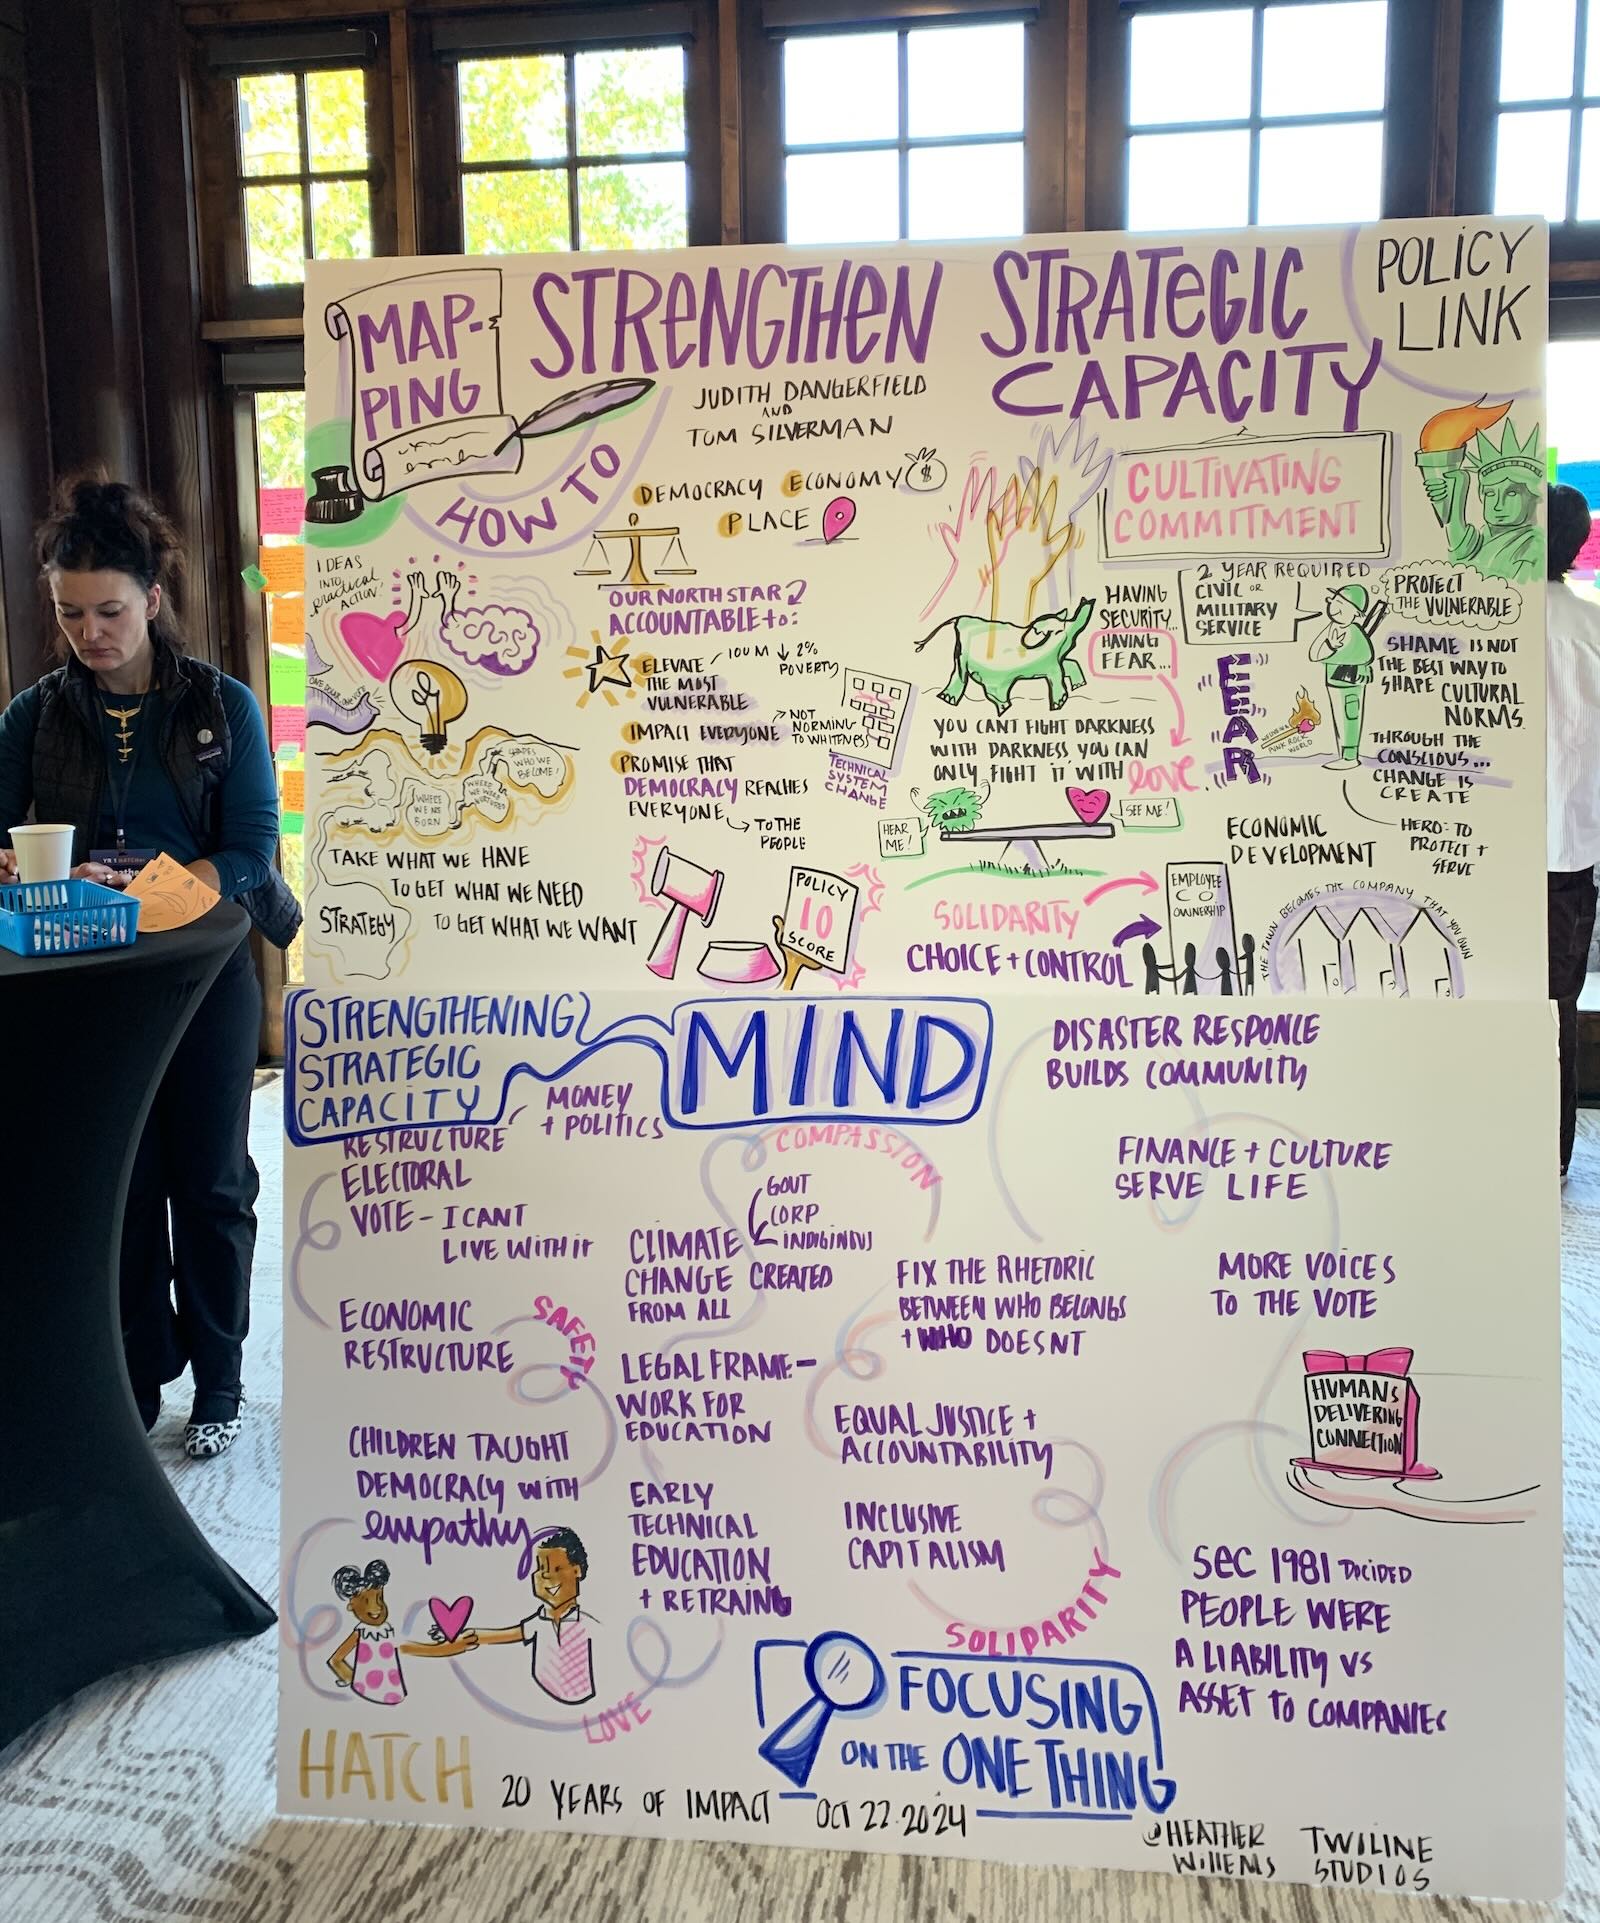 MAP-
PING
HOW TO
STRENGTHEN STRATEGIC
CAPACITY
POLICY
LINK
JUDITH DANGERFIELD
AND
TOM SILVERMAN
DEMOCRACY ECONOMY $
PLACE
IDEAS
INTO
practical
ACTION!
OUR NORTH STAR
ACCOUNTABLE to:
ELEVATE
THE MOST
VULNERABLE
100 M ↓ 2%
POVERTY
IMPACT EVERYONE
NOT
NORMING
TO WHITENESS
TECHNICAL
SYSTEM
CHANGE
PROMISE THAT
DEMOCRACY REACHES
EVERYONE
TO THE
PEOPLE
SHAPES
WHO WE
BECOME!
WHERE
WE WERE
NURTURED
WHERE
WE ARE
BORN
TAKE WHAT WE HAVE
TO GET WHAT WE NEED
TO GET WHAT WE WANT
STRATEGY
POLICY
10
SCORE
CULTIVATING
COMMITMENT
HAVING
SECURITY...
HAVING
FEAR...
2 YEAR REQUIRED
CIVIL OR
MILITARY
SERVICE
PROTECT
THE VULNERABLE
SHAME IS NOT
THE BEST WAY TO
SHAPE CULTURAL
NORMS.
THROUGH THE
CONSCIOUS...
CHANGE IS
CREATE
HERO: TO
PROTECT +
SERVE
FEAR
PUNK ROCK
WORLD
YOU CAN'T FIGHT DARKNESS
WITH DARKNESS YOU CAN
ONLY FIGHT IT WITH love.
HEAR
ME!
SEE ME!
ECONOMIC
DEVELOPMENT
SOLIDARITY
CHOICE + CONTROL
EMPLOYEE
CO
OWNERSHIP
THE TOWN BECOMES THE COMPANY THAT YOU OWN
STRENGTHENING
STRATEGIC
CAPACITY
MIND
MONEY
+ POLITICS
RESTRUCTURE
ELECTORAL
VOTE - I CANT
LIVE WITH it
ECONOMIC
RESTRUCTURE
SAFETY
CHILDREN TAUGHT
DEMOCRACY WITH
empathy
LOVE
COMPASSION
GOVT
CORP
INDIGINOUS
CLIMATE
CHANGE CREATED
FROM ALL
LEGAL FRAME-
WORK FOR
EDUCATION
EARLY
TECHNICAL
EDUCATION
+ RETRAING
DISASTER RESPONCE
BUILDS COMMUNITY
FINANCE + CULTURE
SERVE LIFE
FIX THE RHETORIC
BETWEEN WHO BELONGS
+ WHO DOESNT
MORE VOICES
TO THE VOTE
EQUAL JUSTICE +
ACCOUNTABILITY
INCLUSIVE
CAPITALISM
SOLIDARITY
HUMANS
DELIVERING
CONNECTION
SEC 1981 DECIDED
PEOPLE WERE
A LIABILITY VS
ASSET TO COMPANIES
FOCUSING
ON THE ONE THING
HATCH
20 YEARS OF IMPACT
OCT 22.2024
@HEATHER
WILLEMS
TWILINE
STUDIOS